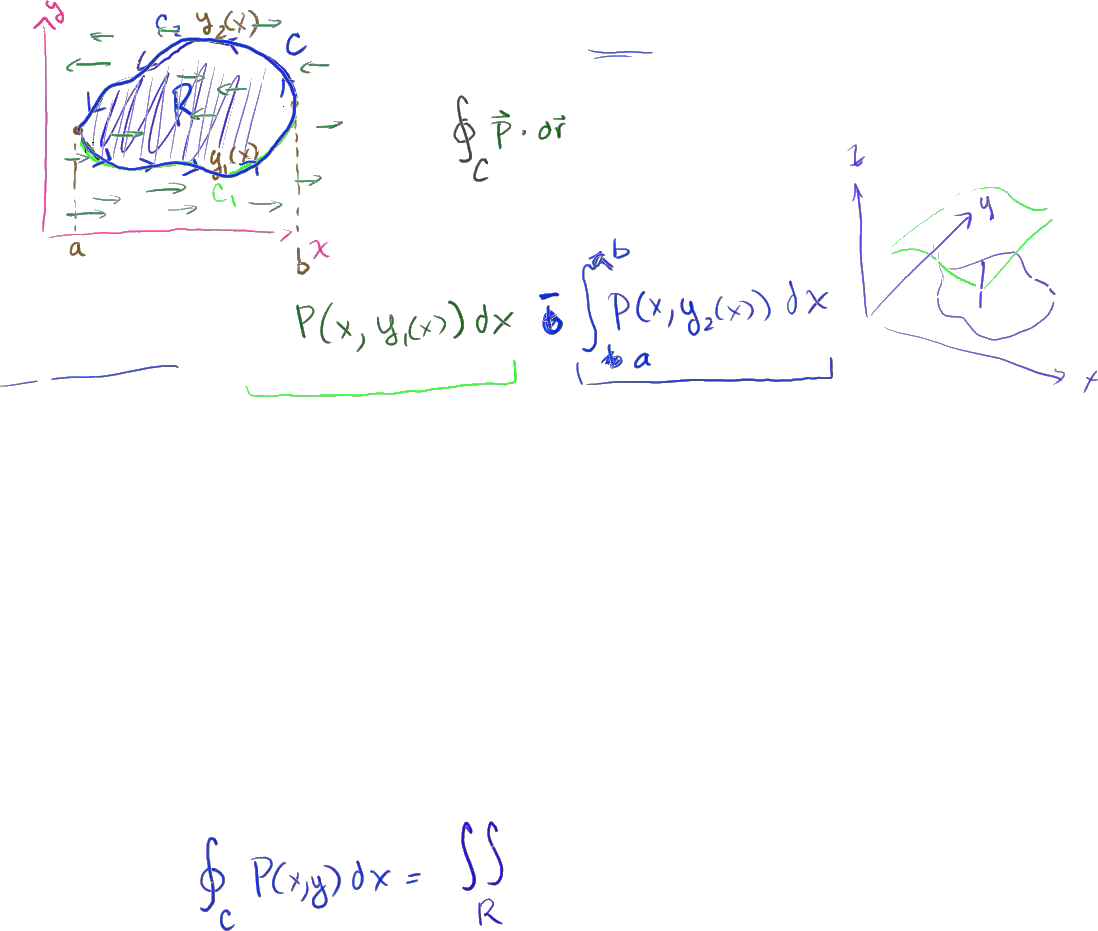 y
C₂ y₂(x)
C
R
y₁(x)
C₁
a
b
x
∮_C P⃗ · dr⃗
z
y
x
P(x, y₁(x)) dx - ∫_a^b P(x, y₂(x)) dx
∮_C P(x,y) dx = ∬_R